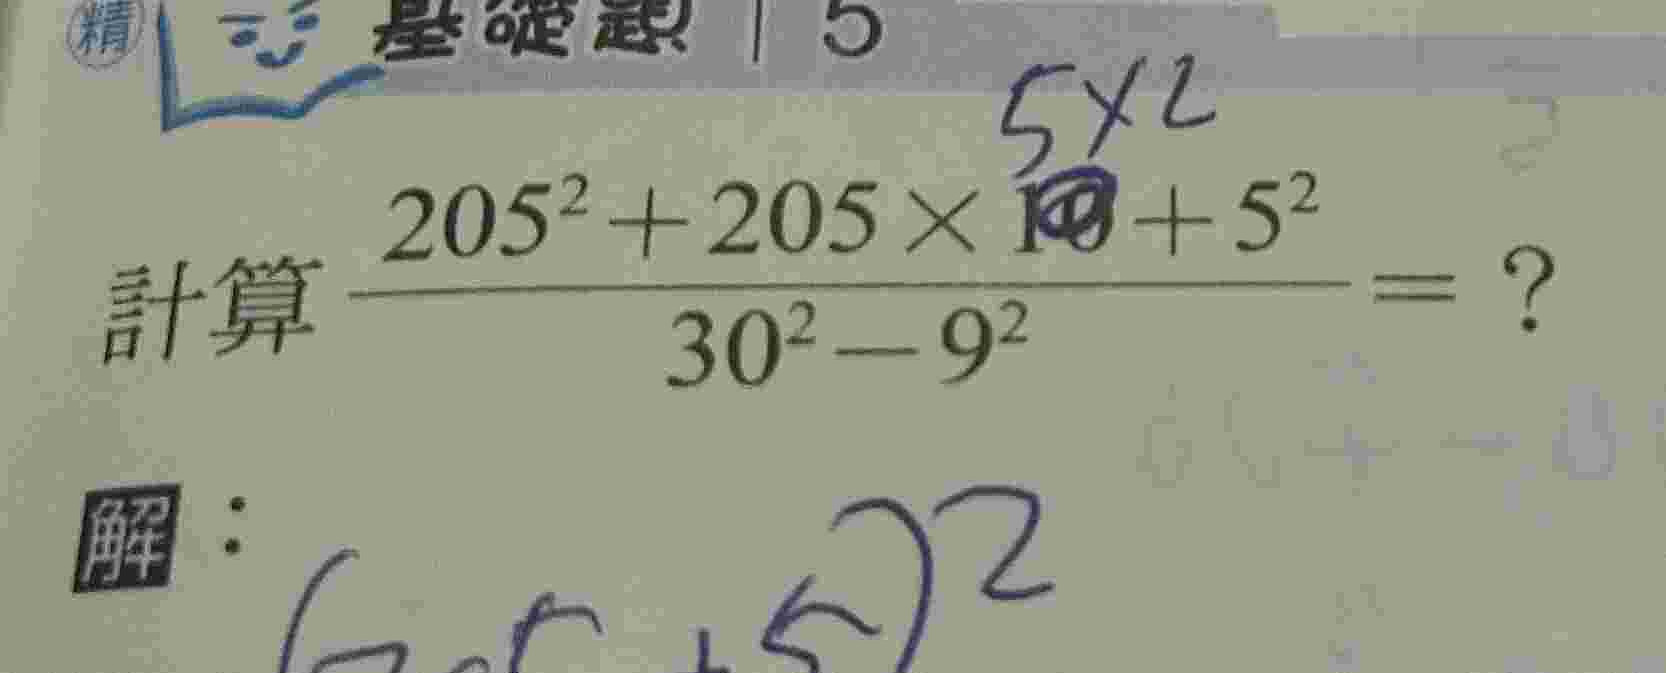 精 基礎題 | 5
5×2
計算 \frac{205^2+205×10+5^2}{30^2-9^2}=?
解:
(205+5)^2